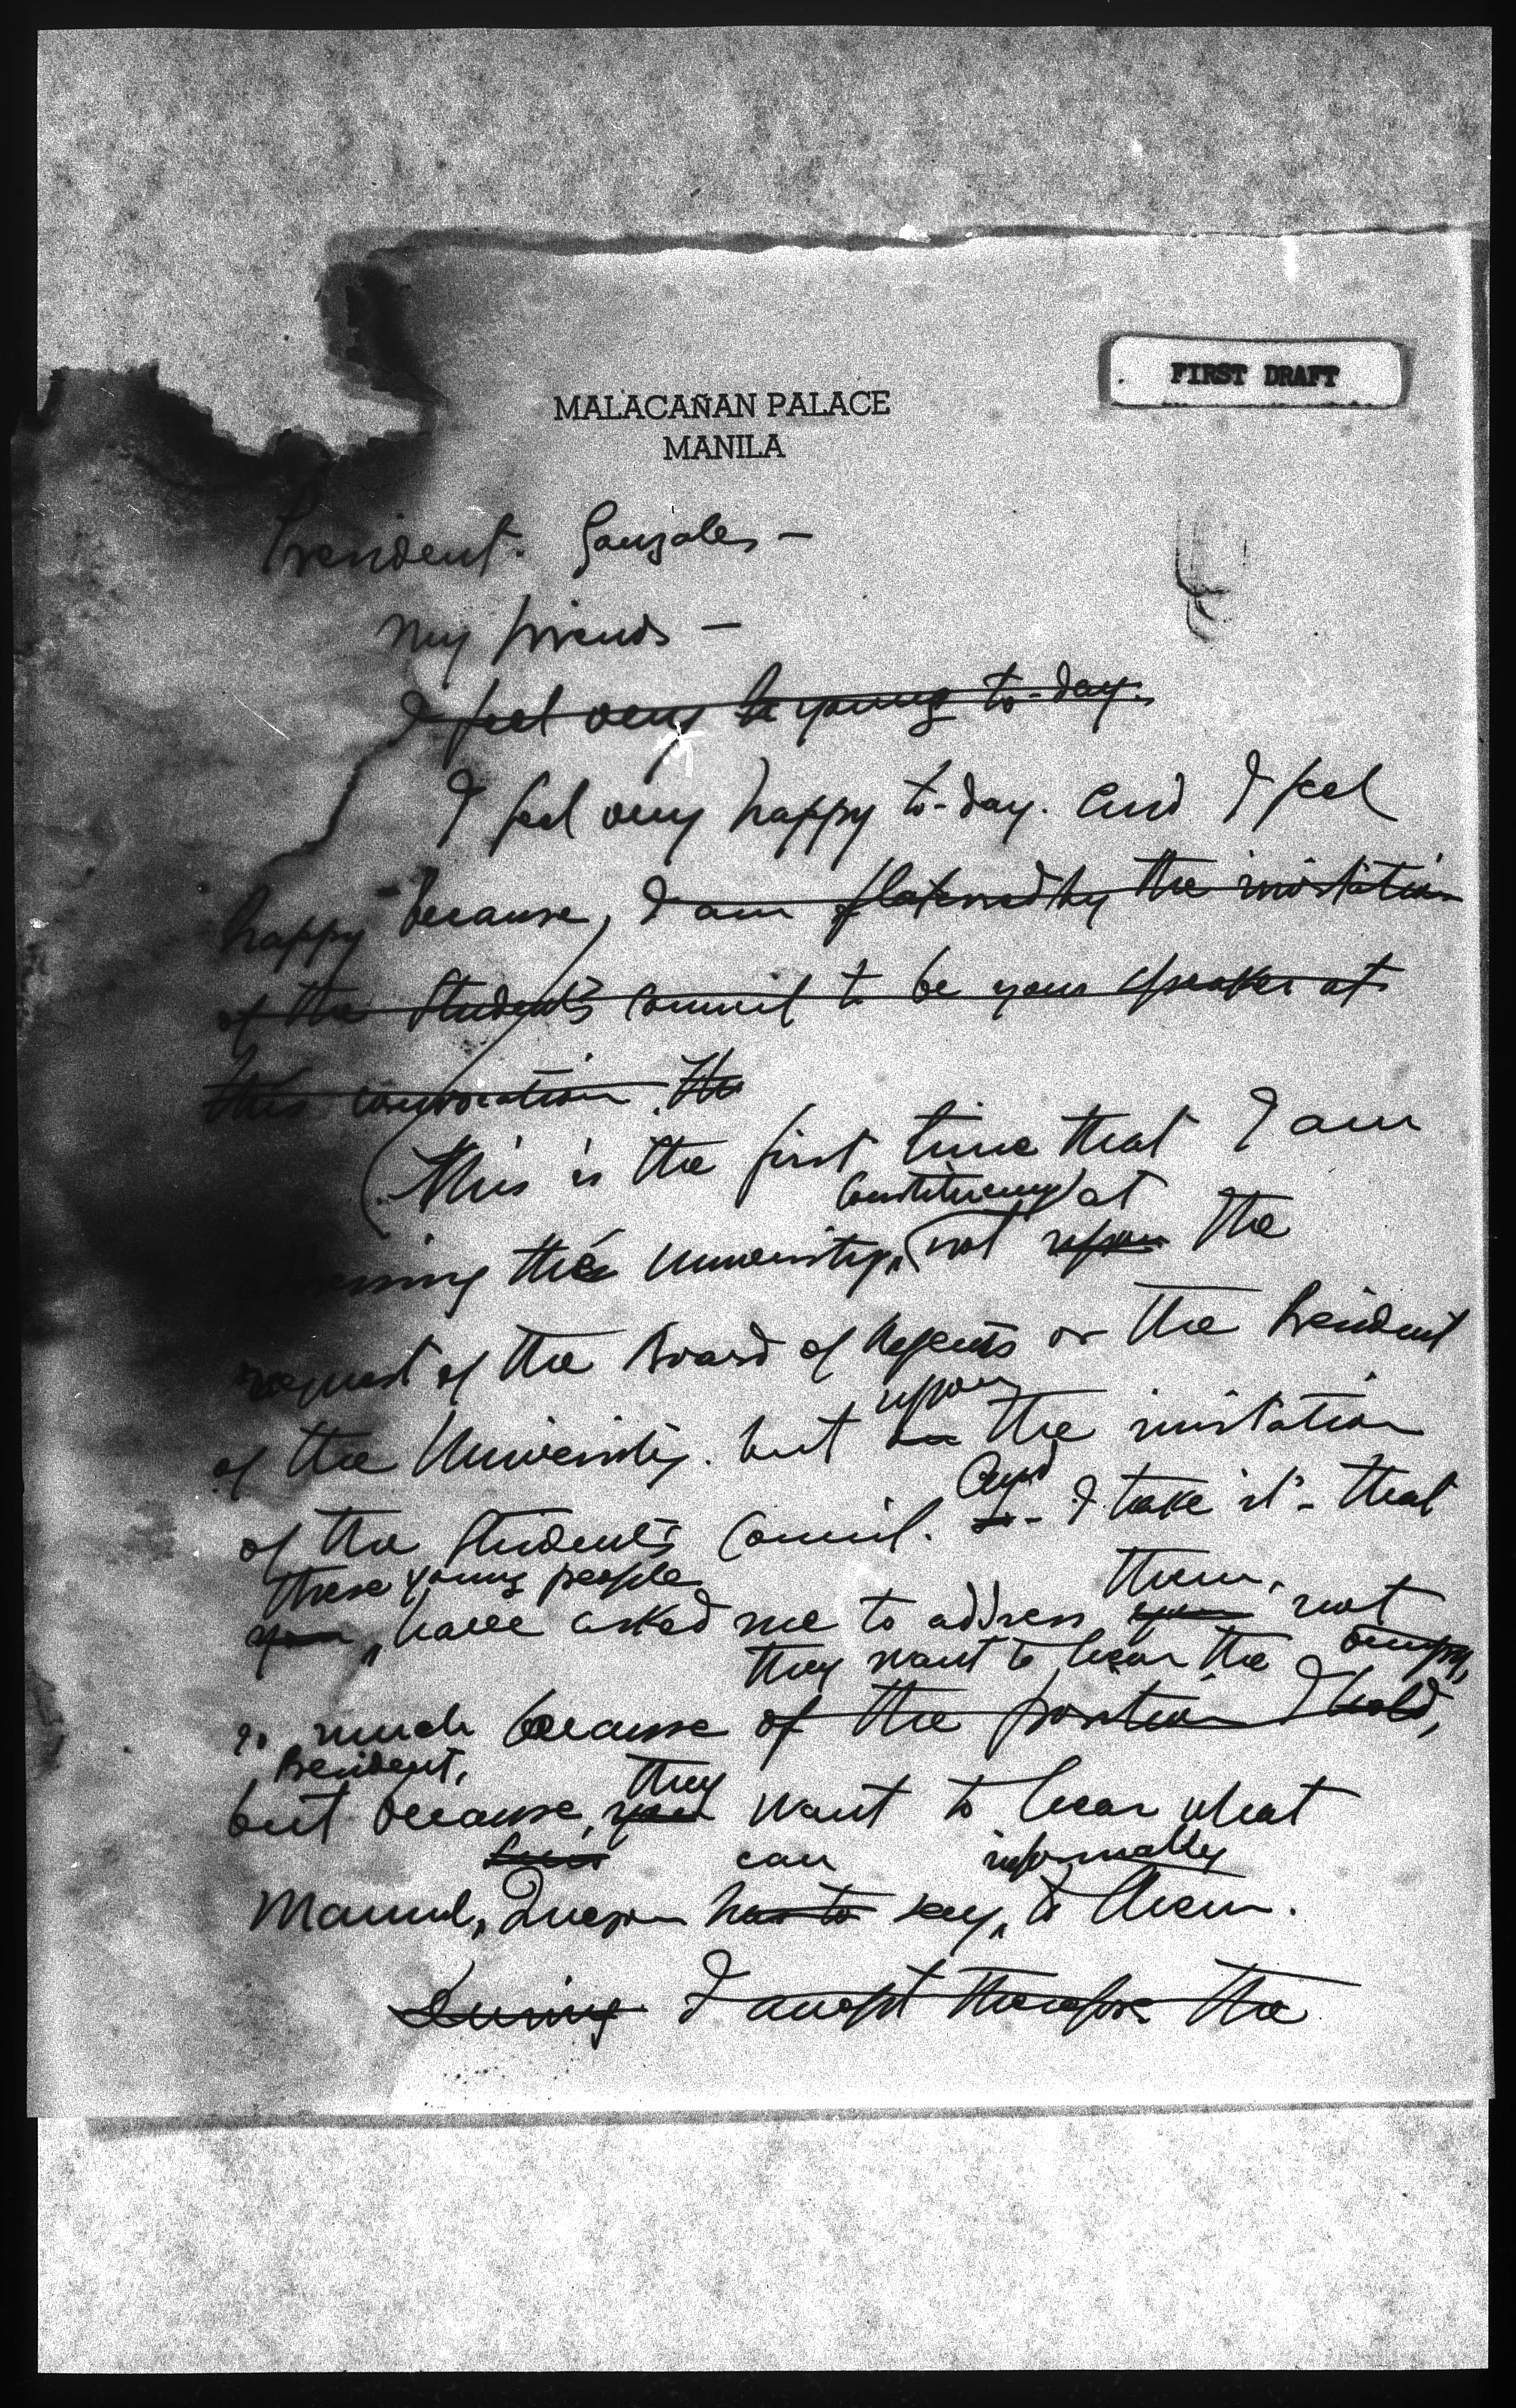 FIRST DRAFT
MALACAÑAN PALACE
MANILA
President Gonzales —
My friends —
I feel very young to-day.
I feel very happy to-day. And I feel
happy because, I am flattered by the invitation
of the Student's Council to be your speaker at
this convocation. The
(This is the first time that I am
constituency) at
the University, (not upon the
request of the Board of Regents or the President
upon
of the University. but the invitation
And
of the Student's Council. I take it - that
these young people them,
you, have asked me to address you not
they want to hear the
so much because of the position I hold,
President,
they
but because, you want to hear what
can informally
Manuel, Quezon has to say, to them.
During I accept therefore the